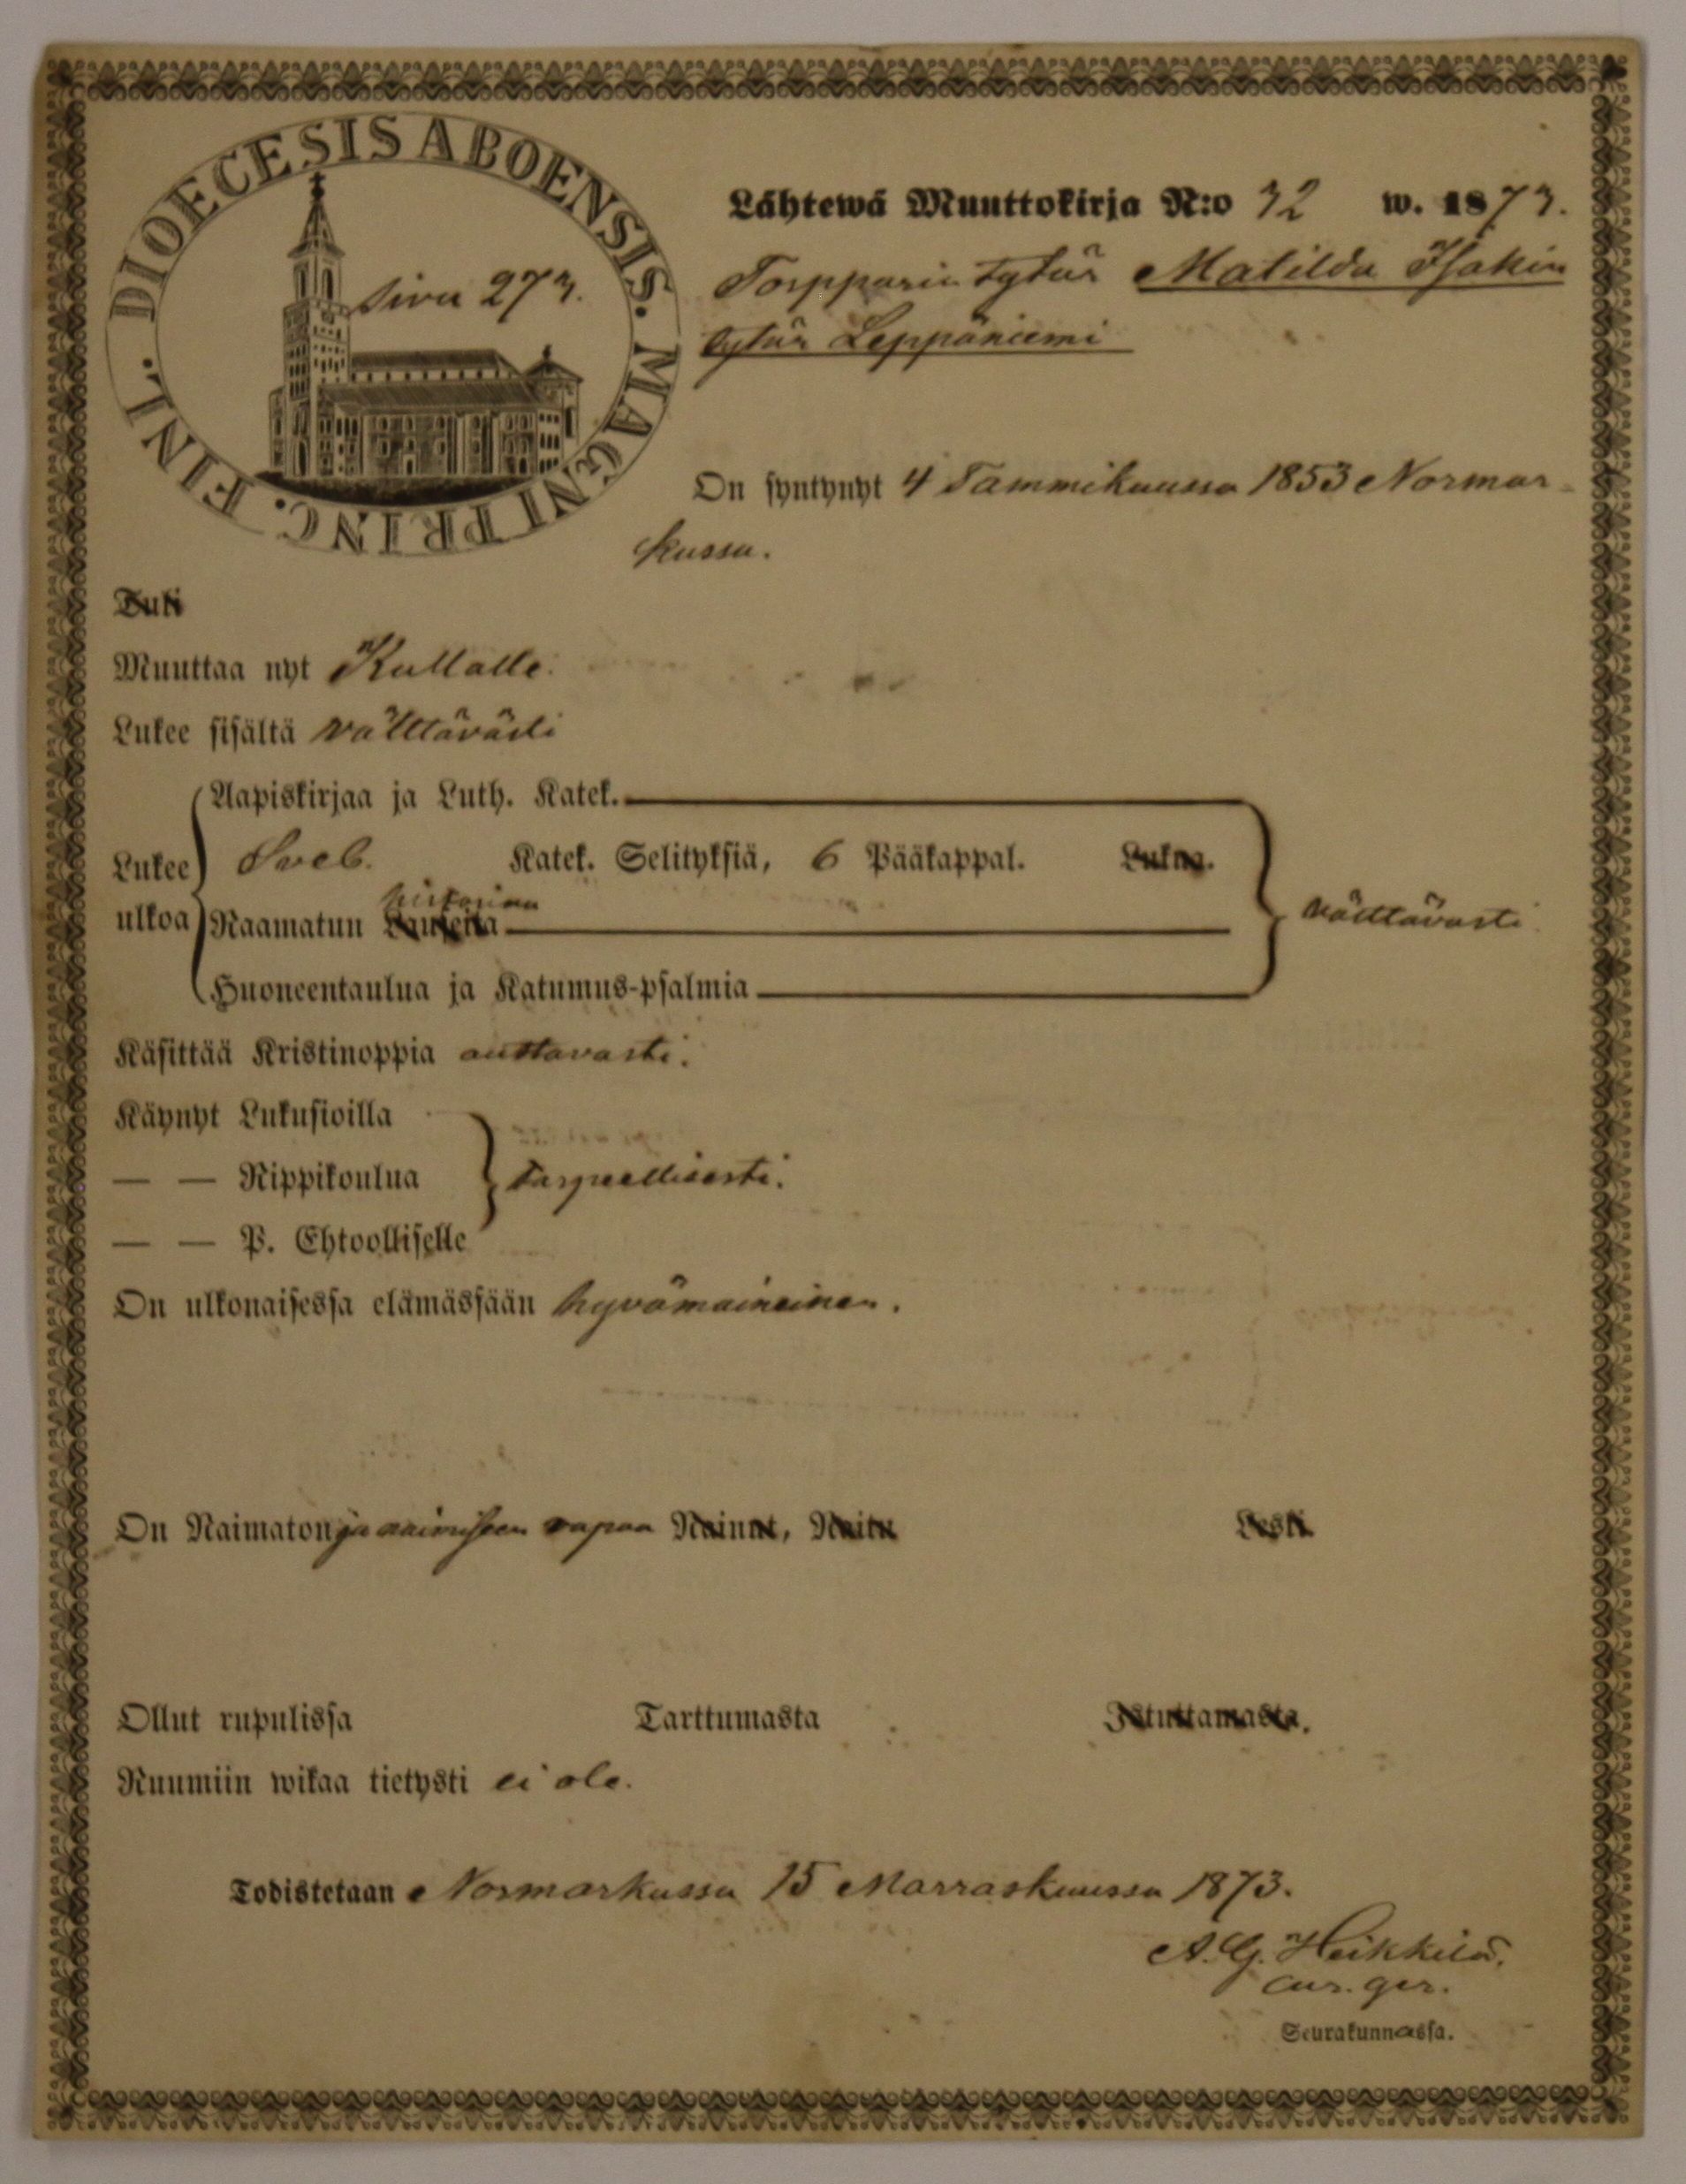 DIOECESIS ABOENSIS. MAGNI PRINC. FINL.
Sivu 273.
Lähtewä Muuttokirja N:o 32 w. 1873.
Torpparin tytär Matilda Isakin
tytär Leppäniemi
On syntynyt 4 Tammikuussa 1853 Normar-
kussa.
Tuli
Muuttaa nyt Kullalle.
Lukee sisältä välttävästi
Aapiskirjaa ja Luth. Katek.
Lukee ulkoa
Sveb. Katek. Selityksiä, 6 Pääkappal. Lukua.
historiaa
Raamatun Lauseita välttävästi
Huoneentaulua ja Katumus-psalmia
Käsittää Kristinoppia auttavasti.
Käynyt Lukusioilla
— — Rippikoulua tarpeellisesti.
— — P. Ehtoolliselle
On ulkonaisessa elämässään hyvämaineinen.
On Naimaton ja naimiseen vapaa Nainut, Naitu Leski.
Ollut rupulissa Tarttumasta Istuttamasta.
Ruumiin wikaa tietysti ei ole.
Todistetaan Normarkussa 15 Marraskuussa 1873.
A. G. Heikkilä.
cur. ger.
Seurakunnassa.